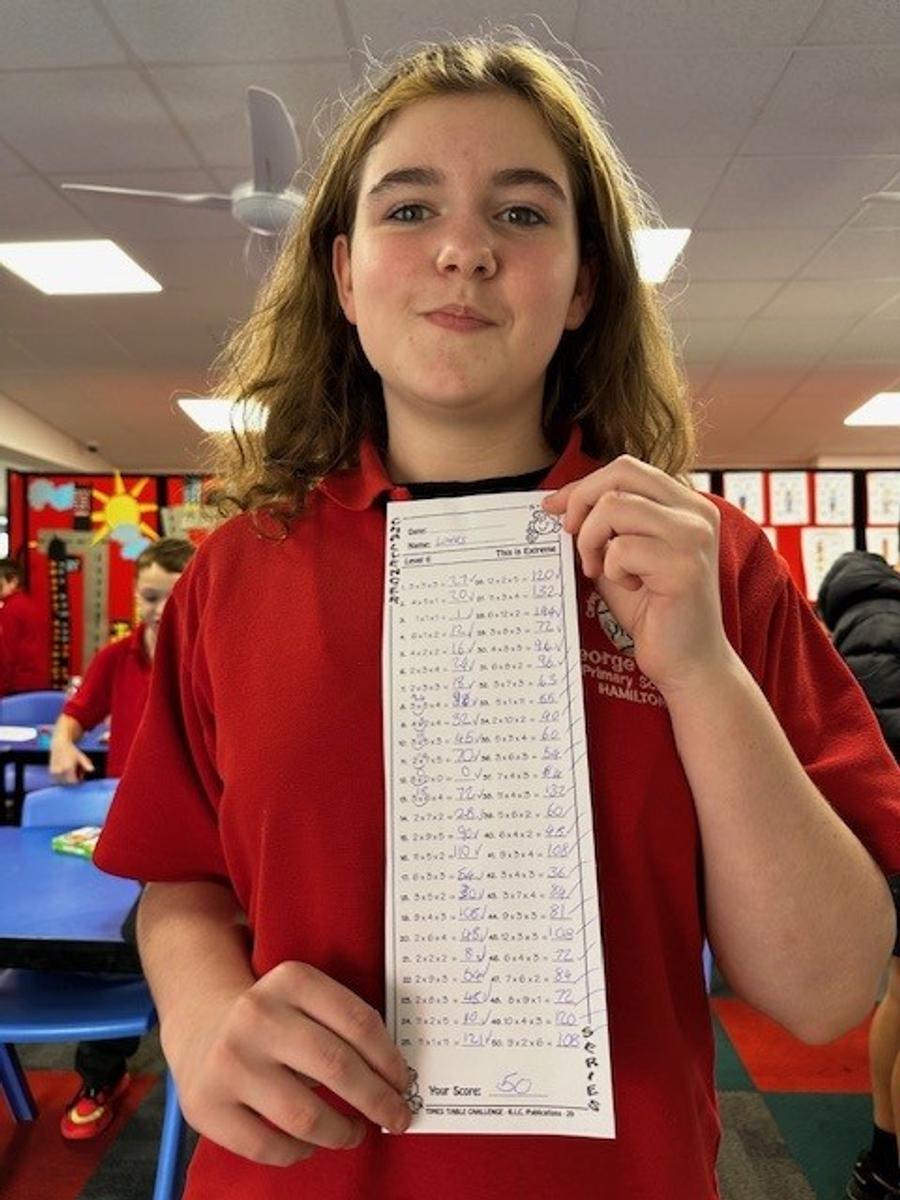 CHALLENGER
Date:
Name:
Level 6 This is Extreme
1. 3 x 3 x 3 = 27 26. 12 x 2 x 5 = 120
2. 4 x 5 x 1 = 20 27. 11 x 3 x 4 = 132
3. 1 x 1 x 1 = 1 28. 6 x 12 x 2 = 144
4. 6 x 1 x 2 = 12 29. 3 x 8 x 3 = 72
5. 4 x 2 x 2 = 16 30. 4 x 8 x 3 = 96
6. 2 x 3 x 4 = 24 31. 6 x 8 x 2 = 96
7. 2 x 3 x 3 = 18 32. 3 x 7 x 3 = 63
8. 3 x 8 x 4 = 96 33. 5 x 1 x 11 = 55
9. = 32 34. 2 x 10 x 2 = 40
10. 3 x 5 x 3 = 45 35. 5 x 3 x 4 = 60
11. 2 x 7 x 5 = 70 36. 3 x 6 x 3 = 54
12. = 0 37. 7 x 4 x 3 = 84
13. 3 x 6 x 4 = 72 38. 11 x 4 x 3 = 132
14. 2 x 7 x 2 = 28 39. 5 x 6 x 2 = 60
15. 2 x 9 x 5 = 90 40. 6 x 4 x 2 = 48
16. 11 x 5 x 2 = 110 41. 9 x 3 x 4 = 108
17. 6 x 3 x 3 = 54 42. 3 x 4 x 3 = 36
18. 3 x 5 x 2 = 30 43. 3 x 7 x 4 = 84
19. 9 x 4 x 3 = 108 44. 9 x 3 x 3 = 81
20. 2 x 6 x 4 = 48 45. 12 x 3 x 3 = 108
21. 2 x 2 x 2 = 8 46. 6 x 4 x 3 = 72
22. 2 x 9 x 3 = 54 47. 7 x 6 x 2 = 84
23. 2 x 8 x 3 = 48 48. 8 x 9 x 1 = 72
24. 49. 10 x 4 x 3 = 120
25. 11 x 1 x 11 = 121 50. 9 x 2 x 6 = 108
SERIES
Your Score: 50
TIMES TABLE CHALLENGE - R.I.C. Publications - 29
eorge
Primary Sc
HAMILTON